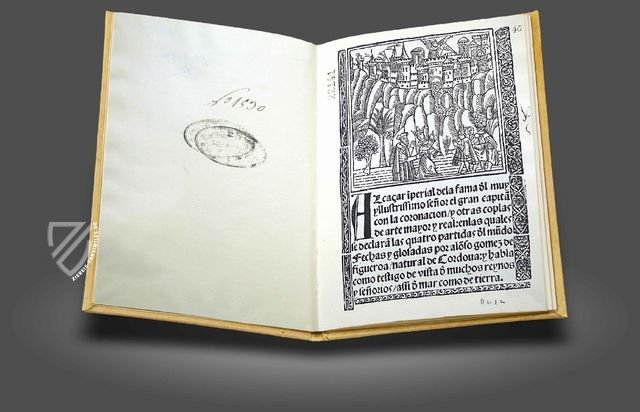 ZIEREIS FAKSIMILES.DE
40
Alcaçar īperial dela fama dl muy
yllustrissimo señor el gran capitā
con la coronacion/ y otras coplas
de arte mayor y real: en las quales
se declarā las quatro partidas dl mūdo
Fechas y glosadas por alōso gomez de
figueroa/ natural de Cordoua: y habla
como testigo de vista d̄ muchos reynos
y señorios/ assi d̄ mar como de tierra.